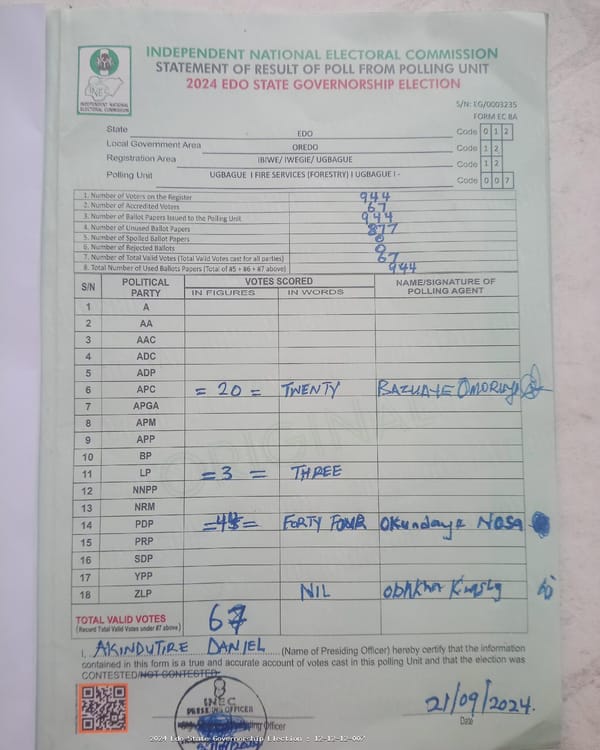 INDEPENDENT NATIONAL ELECTORAL COMMISSION
STATEMENT OF RESULT OF POLL FROM POLLING UNIT
2024 EDO STATE GOVERNORSHIP ELECTION
INEC
INDEPENDENT NATIONAL ELECTORAL COMMISSION
S/N: EG/0003235
FORM EC 8A
State EDO Code 0 1 2
Local Government Area OREDO Code 1 2
Registration Area IBIWE/ IWEGIE/ UGBAGUE Code 1 2
Polling Unit UGBAGUE I FIRE SERVICES (FORESTRY) I UGBAGUE I - Code 0 0 7
1. Number of Voters on the Register 944
2. Number of Accredited Voters 67
3. Number of Ballot Papers Issued to the Polling Unit 944
4. Number of Unused Ballot Papers 877
5. Number of Spoiled Ballot Papers 0
6. Number of Rejected Ballots 0
7. Number of Total Valid Votes (Total Valid Votes cast for all parties) 67
8. Total Number of Used Ballots Papers (Total of #5 + #6 + #7 above) 944
S/N POLITICAL PARTY VOTES SCORED NAME/SIGNATURE OF POLLING AGENT
IN FIGURES IN WORDS
1 A
2 AA
3 AAC
4 ADC
5 ADP
6 APC = 20 = TWENTY
7 APGA
8 APM
9 APP
10 BP
11 LP = 3 = THREE
12 NNPP
13 NRM
14 PDP FORTY FOUR Okundaye Nosa
15 PRP
16 SDP
17 YPP
18 ZLP NIL
TOTAL VALID VOTES 67
(Record Total Valid Votes under #7 above)
I, AKINDUTIRE DANIEL (Name of Presiding Officer) hereby certify that the information
contained in this form is a true and accurate account of votes cast in this polling Unit and that the election was
CONTESTED/NOT CONTESTED.
INEC
PRESIDING OFFICER
21/09/2024.
Date
2024 Edo State Governorship Election : 12-12-12-007